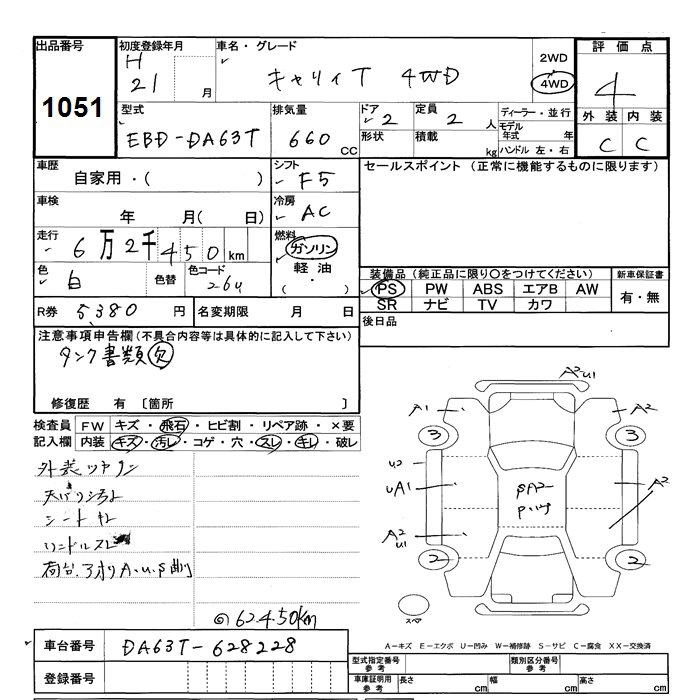 出品番号 初度登録年月 車名・グレード 評価点
1051 H 21 月 キャリィT 4WD 2WD 4WD 4
型式 排気量 ドア 定員 ディーラー・並行 外装 内装
EBD-DA63T 660 CC 2 2 人 モデル年式 年 C C
形状 積載 kg ハンドル 左・右
車歴 シフト セールスポイント (正常に機能するものに限ります)
自家用・( ) F5
車検 冷房
年 月( 日) AC
走行 燃料
6万2千450km ガソリン
色 色替 色コード 軽油
白 26U ・( )
装備品(純正品に限り○をつけてください) 新車保証書
PS PW ABS エアB AW 有・無
SR ナビ TV カワ
R券 5,380 円 名変期限 月 日
後日品
注意事項申告欄(不具合内容等は具体的に記入して下さい)
タンク書類欠
修復歴 有 〔箇所 〕
検査員 FW キズ・飛石・ヒビ割・リペア跡・×要
記入欄 内装 キズ・汚レ・コゲ・穴・スレ・キレ・破レ
シートキレ
荷台、アオリA.U.P曲り
◎62450km
A2 U1
A1 A2
3 3
U2
UA1 PA2 A2
A2 U1
2 2
スペア
A-キズ E-エクボ U-凹み W-補修跡 S-サビ C-腐食 XX-交換済
車台番号 DA63T-628228
登録番号
型式指定番号 参考 類別区分番号 参考
車庫証明用 参考 長さ cm 幅 cm 高さ cm